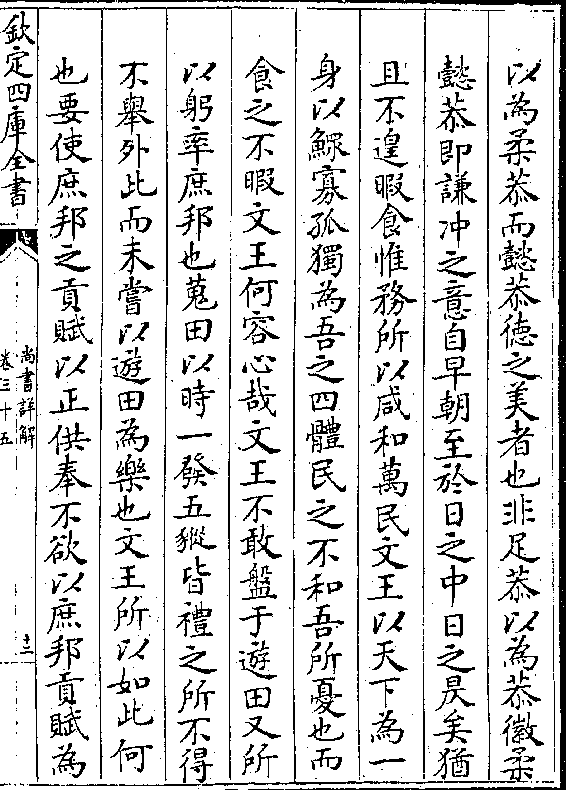 以為柔恭而懿恭徳之美者也非足恭以為恭徽柔
懿恭即謙冲之意自早朝至於日之中日之昃矣猶
且不遑暇食惟務所以咸和萬民文王以天下為一
身以鰥寡孤獨為吾之四體民之不和吾所憂也而
食之不暇文王何容心哉文王不敢盤于遊田又所
以躬率庶邦也蒐田以時一發五豵皆禮之所不得
不舉外此而未嘗以遊田為樂也文王所以如此何
也要使庶邦之貢賦以正供奉不欲以庶邦貢賦為
欽定四庫全書
尚書詳解
卷三十五
十二